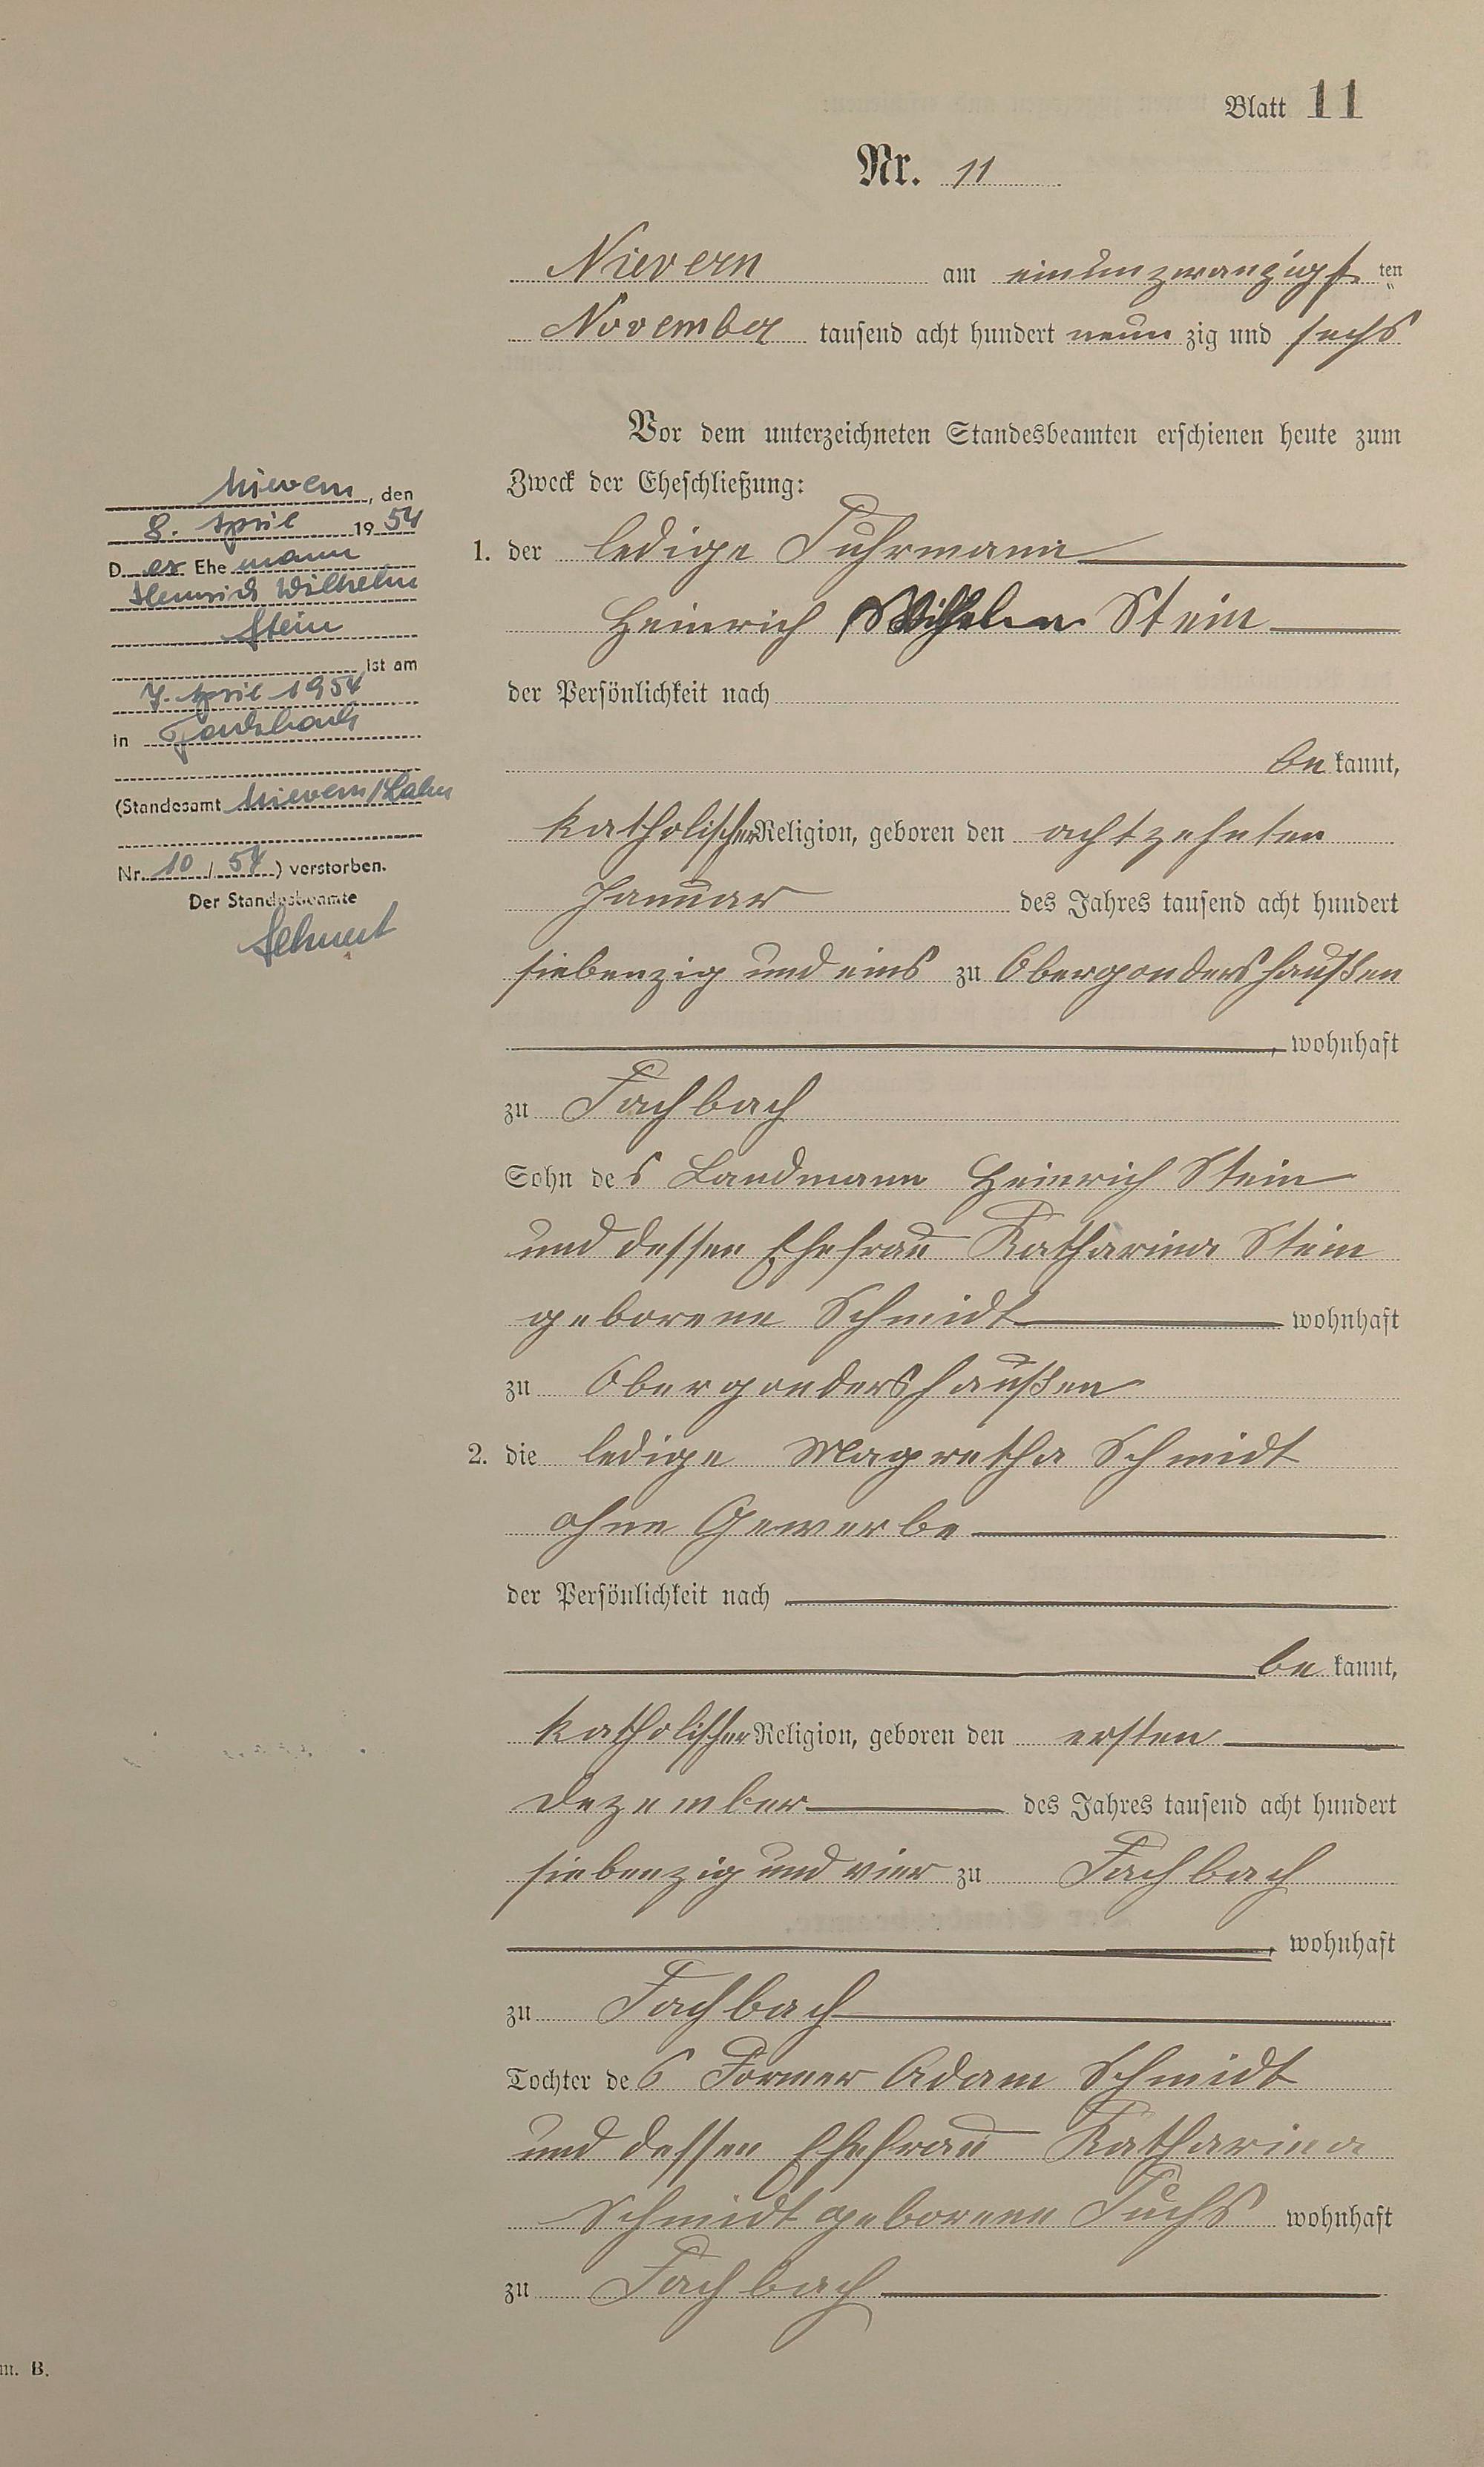 Blatt 11
Nr. 11
Nievern am einunzwanzigst ten
November tausend acht hundert neun zig und sechs
Vor dem unterzeichneten Standesbeamten erschienen heute zum
Zweck der Eheschließung:
1. der ledige Fuhrmann
Heinrich Wilhelm Stein
der Persönlichkeit nach
be kannt,
katholischer Religion, geboren den achtzehnten
Januar des Jahres tausend acht hundert
siebenzig und eins zu Obergondershaußen
, wohnhaft
zu Fachbach
Sohn des Landmann Heinrich Stein
und dessen Ehefrau Katharina Stein
geborene Schmidt wohnhaft
zu Obergondershaußen
2. die ledige Magretha Schmidt
ohne Gewerbe
der Persönlichkeit nach
be kannt,
katholischer Religion, geboren den ersten
Dezember des Jahres tausend acht hundert
siebenzig und vier zu Fachbach
, wohnhaft
zu Fachbach
Tochter des Former Adam Schmidt
und dessen Ehefrau Katharina
Schmidt geborene Fuchs wohnhaft
zu Fachbach
Nievern, den
8. April 1954
Der Ehemann
Heinrich Wilhelm
Stein
ist am
7. April 1954
in Fachbach
(Standesamt Nievern/Lahn
Nr. 10 / 54 ) verstorben.
Der Standesbeamte
m. B.